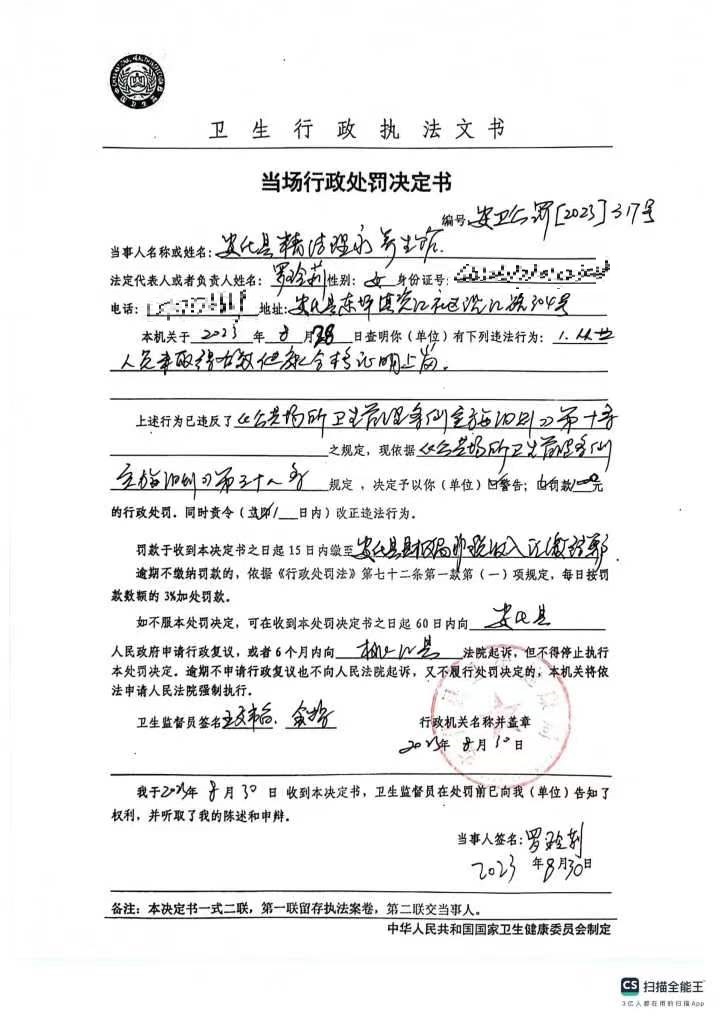 卫生行政执法文书
当场行政处罚决定书
编号:安卫公罚[2023]317号
当事人名称或姓名:安化县精洁理永养生店.
法定代表人或者负责人姓名:罗玲莉性别:女 身份证号:
电话: 地址:安化县东坪镇资江社区沿江路304号
本机关于 2023 年 8 月 日查明你(单位)有下列违法行为:1.从业
人员未取得有效健康合格证明上岗。
上述行为已违反了《公共场所卫生管理条例实施细则》第十条
之规定,现依据《公共场所卫生管理条例
实施细则》第三十八条 规定,决定予以你(单位)警告;罚款 元
的行政处罚。同时责令(立即/ 日内)改正违法行为。
罚款于收到本决定书之日起 15 日内缴至安化县财政局非税收入汇缴结算
逾期不缴纳罚款的,依据《行政处罚法》第七十二条第一款第(一)项规定,每日按罚
款数额的 3%加处罚款。
如不服本处罚决定,可在收到本处罚决定书之日起 60 日内向 安化县
人民政府申请行政复议,或者 6 个月内向 桃江县 法院起诉,但不得停止执行
本处罚决定。逾期不申请行政复议也不向人民法院起诉,又不履行处罚决定的,本机关将依
法申请人民法院强制执行。
卫生监督员签名 行政机关名称并盖章
2023年 8 月 日
我于2023年 8 月 30 日 收到本决定书,卫生监督员在处罚前已向我(单位)告知了
权利,并听取了我的陈述和申辩。
当事人签名:罗玲莉
2023 年8月30日
备注:本决定书一式二联,第一联留存执法案卷,第二联交当事人。
中华人民共和国国家卫生健康委员会制定
CS 扫描全能王
3亿人都在用的扫描App